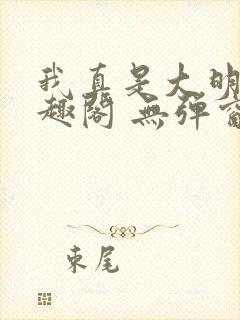 我真是大明
趣阁 無弹窗
束尾